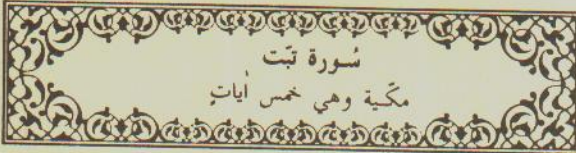 سُورة تبّت
مكّية وهي خمس أيات